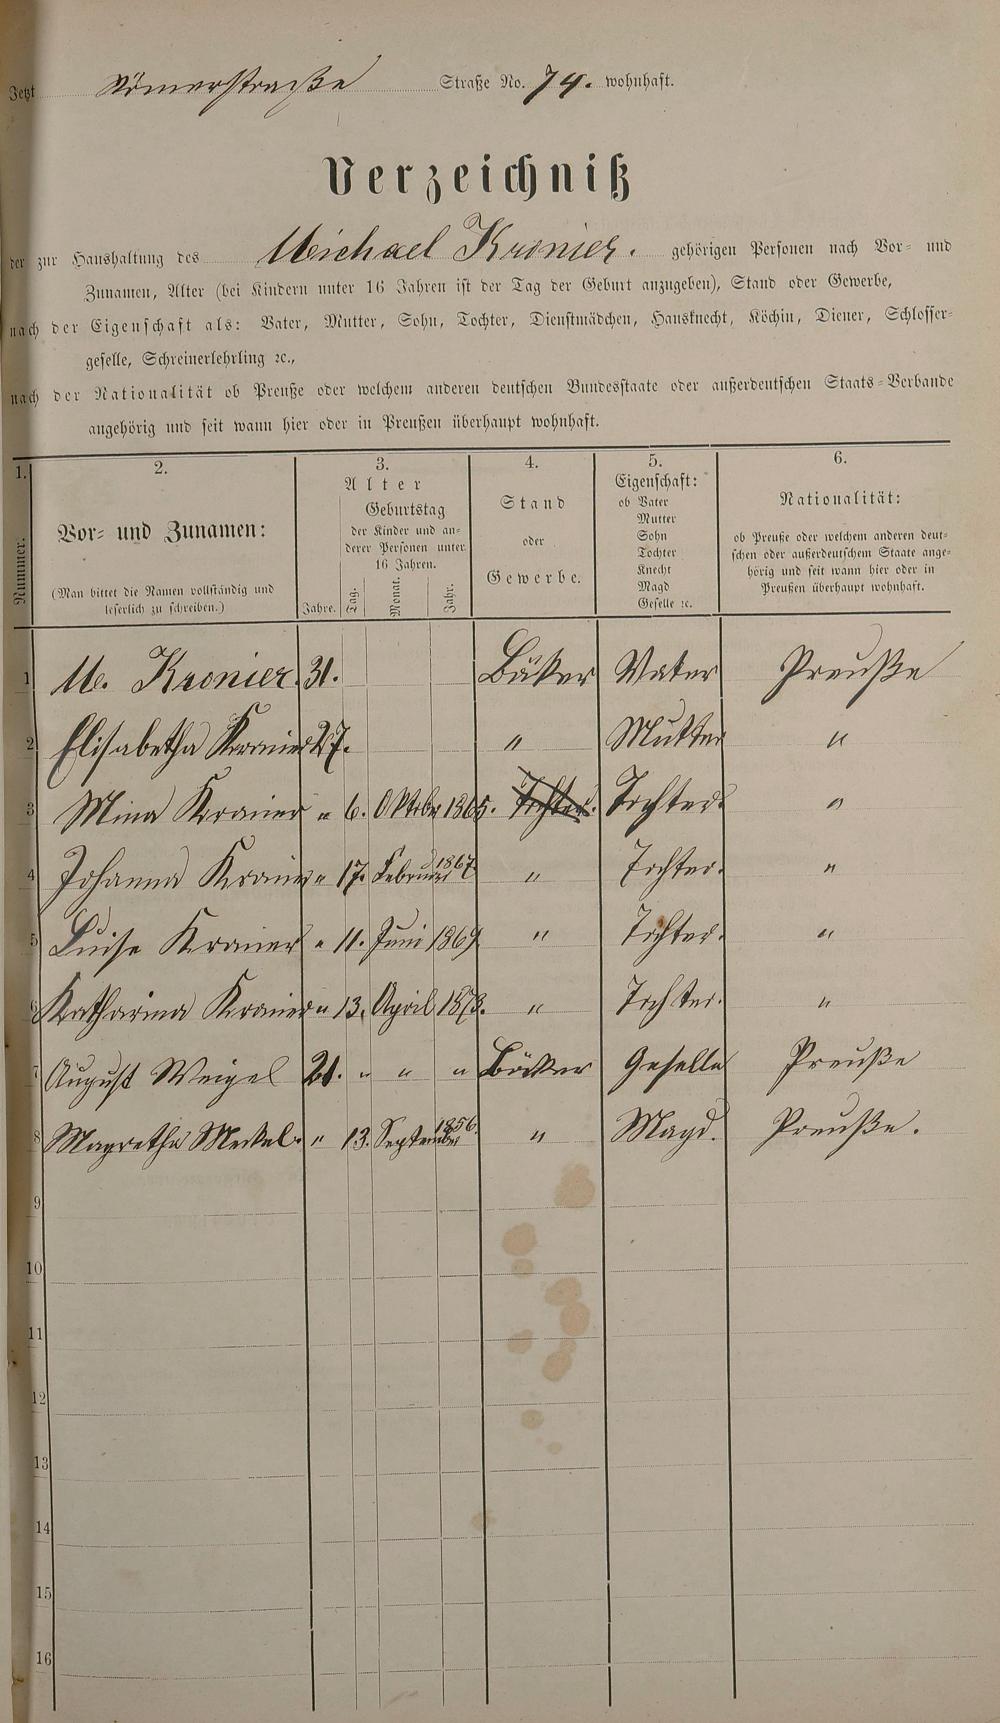 Jetzt Römerstraße Straße No. 74. wohnhaft.
Verzeichniß
der zur Haushaltung des Michael Kronier. gehörigen Personen nach Vor- und
Zunamen, Alter (bei Kindern unter 16 Jahren ist der Tag der Geburt anzugeben), Stand oder Gewerbe,
nach der Eigenschaft als: Vater, Mutter, Sohn, Tochter, Dienstmädchen, Hausknecht, Köchin, Diener, Schlosser-
geselle, Schreinerlehrling ꝛc.,
nach der Nationalität ob Preuße oder welchem anderen deutschen Bundesstaate oder außerdeutschen Staats-Verbande
angehörig und seit wann hier oder in Preußen überhaupt wohnhaft.
1.
Nummer.
2.
Vor- und Zunamen:
(Man bittet die Namen vollständig und
leserlich zu schreiben.)
3.
Alter
Jahre.
Geburtstag
der Kinder und an-
derer Personen unter
16 Jahren.
Tag.
Monat.
Jahr.
4.
Stand
oder
Gewerbe.
5.
Eigenschaft:
ob Vater
Mutter
Sohn
Tochter
Knecht
Magd
Geselle ꝛc.
6.
Nationalität:
ob Preuße oder welchem anderen deut-
schen oder außerdeutschem Staate ange-
hörig und seit wann hier oder in
Preußen überhaupt wohnhaft.
1 M. Kronier. 31. Bäker Vater Preuße
2 Elisabetha Kronier 27. " Mutter "
3 Mina Kronier " 6. Oktober 1865. Tochter. Tochter. "
4 Johanna Kronier " 17. Februar 1867 " Tochter. "
5 Luise Kronier " 11. Juni 1869 " Tochter. "
6 Katharina Kronier " 13. April 1873. " Tochter. "
7 August Weigel 21. " " " Bäcker Geselle Preuße
8 Magretha Meckel. " 13. September 1856. " Magd. Preuße.
9
10
11
12
13
14
15
16